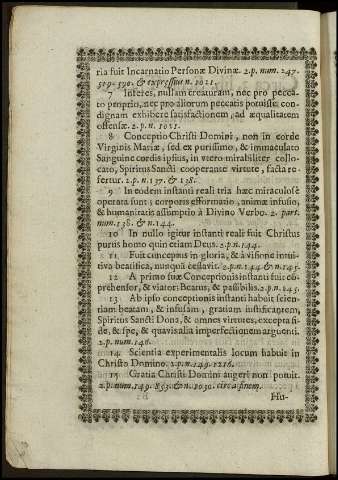 ria fuit Incarnatio Personæ Divinæ. 2.p. num. 247.
579. 590. & expressius n. 1021.
7 Inferes, nullam creaturam, nec pro pecca-
to proprio, nec pro aliorum peccatis potuisse con-
dignam exhibere satisfactionem, ad æqualitatem
offensæ. 2.p.n. 1021.
8 Conceptio Christi Domini, non in corde
Virginis Mariæ, sed ex purissimo, & immaculato
Sanguine cordis ipsius, in utero mirabiliter collo-
cato, Spiritus Sancti cooperante virtute, facta re-
fertur. 2.p.n. 137. & 138.
9 In eodem instanti reali tria hæc miraculosè
operata sunt; corporis efformatio, animæ infusio,
& humanitatis assumptio à Divino Verbo. 2. part.
num. 138. & n. 144.
10 In nullo igitur instanti reali fuit Christus
purus homo quin etiam Deus. 2.p.n. 144.
11 Fuit conceptus in gloria, & à visione intui-
tiva beatifica, nusquã cessavit. 2.p.n. 144 & n. 145.
12 A primo suæ Conceptionis instanti fuit cõ-
prehensor, & viator: Beatus, & passibilis. 2.p.n. 145.
13 Ab ipso conceptionis instanti habuit scien-
tiam beatam, & infusam, gratiam justificantem,
Spiritus Sancti Dona, & omnes virtutes, excepta fi-
de, & spe, & quavis alia imperfectionem arguenti.
2.p. num. 146.
14 Scientia experimentalis locum habuit in
Christo Domino. 2.p.n. 149. 1216.
15 Gratia Christi Domini augeri non potuit.
2.p. num. 149. 853. & n. 1030. circa finem.
Hu-